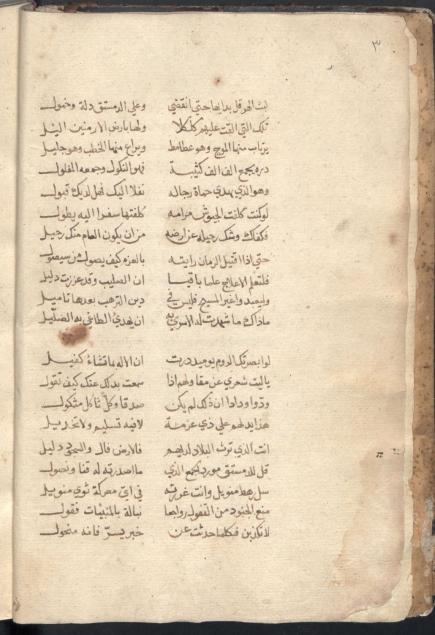 ٣
ليت الهرقل بدا بها حتى انقضى وعلى الدمستق ذلة وخمول
تلك التي القت عليهم كلكلا ولها بارض الارمنين اليل
يرتاب منها الموج وهو غطامط ويراع منها الخطب وهو جليل
بجمع الف الف كتيبة فهو النكول وجمعه المفلول
وهو الذي يهدي حماة رجاله نفلا اليك فهل لديك قبول
لو كنت كلفت الجيوش مرامه كلفتها سفرا اليه يطول
فكفاك وشك رحيله عن ارضه من ان يكون العام منك رحيل
حتى اذا اقتبل الزمان رايته بالعزم كيف يصول من سيصول
فلتعلم الاعلاج علما ثاقبا ان الصليب وقد عززت ذليل
وليعبدوا غير المسيح فليس في دين الترهب بعدها تاميل
ما ذاك ما شهدت له الاسرى به ان يهدي الطاغي به الضليل
لو ابصرتك الروم يوميذ درت ان الاله بما تشاء كفيل
يا ليت شعري عن مقاولهم اذا سمعت بذلك عنك كيف تقول
ودوا ودادا ان ذلك لم يكن صدقا وكل ثاكل مثكول
هذا يدلهم على ذي عزمة لا فيه تسليم ولا تخذيل
انت الذي ترث البلاد لديهم فالارض فال والسجود دليل
قل للدمستق مورد الجمع الذي ما اصدرته له قنا ونصول
سل رهط منويل وانت غررته في اي معركة ثوى منويل
منع الجنود من القفول رواجعا تبا له بالمنديات قفول
لا تكذبن فكلما حدثت عن خبر يسر فانه منحول